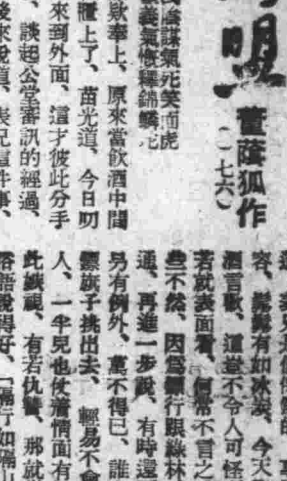 明
董蔭狐作
（一七六）
氣死笑面虎
義氣
欵奉上、原來當飲酒中間
櫃上了、苗光道、今日叨
來到外面、這才彼此分手
、談起公堂審訊的經過、
後來說道、表兄這件事、
容、
有如冰炭、今天
酒言歡、這豈不令人可怪
若就表面看、何常不言之
些不然、因爲鏢行跟綠林
通、再進一步說、有時還
另有例外、萬不得已、誰
鏢旗子挑出去、輕易不會
人、一半兒也仗着情面有
此鏢視、有若仇讐、那就
俗語說得好、「隔行如隔山